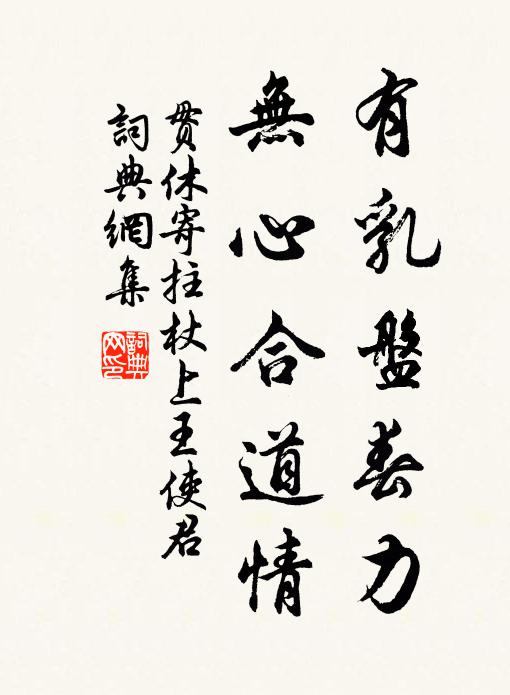 有乳盤春力
無心合道情
貫休寄拄杖上王使君
詞典網集
詞典網印